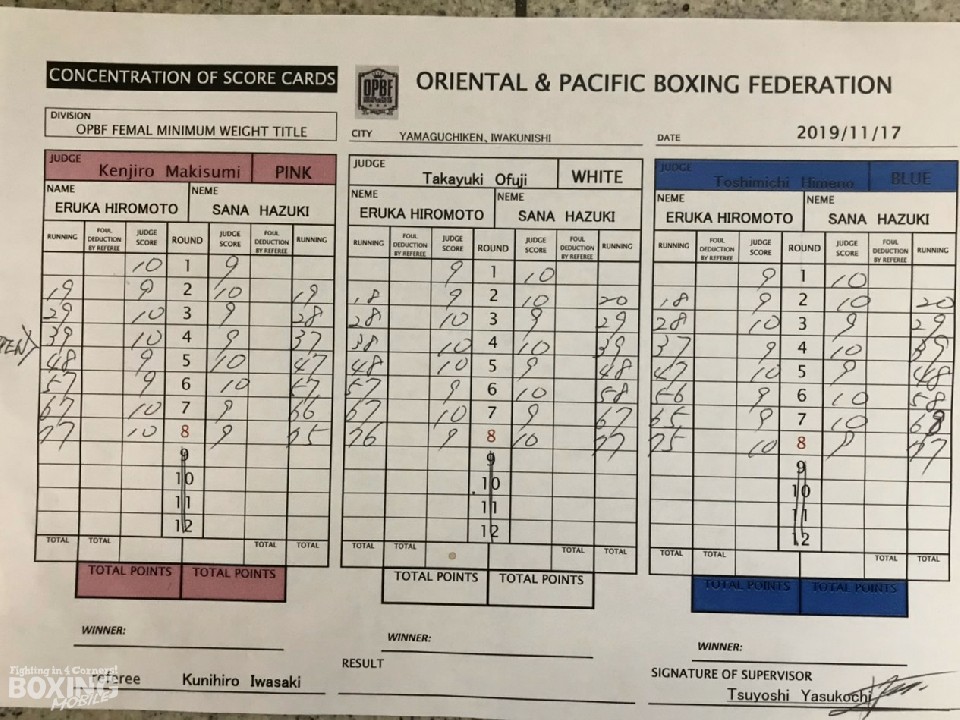 CONCENTRATION OF SCORE CARDS
OPBF
ORIENTAL & PACIFIC BOXING FEDERATION
DIVISION
OPBF FEMAL MINIMUM WEIGHT TITLE
CITY YAMAGUCHIKEN, IWAKUNISHI
DATE 2019/11/17
JUDGE Kenjiro Makisumi PINK
NAME NEME
ERUKA HIROMOTO SANA HAZUKI
RUNNING FOUL DEDUCTION BY REFEREE JUDGE SCORE ROUND JUDGE SCORE FOUL DEDUCTION BY REFEREE RUNNING
10 1 9
19 9 2 10 19
29 10 3 9 28
39 10 4 9 37
48 9 5 10 47
57 9 6 10 57
67 10 7 9 66
77 10 8 9 75
9
10
11
12
TOTAL TOTAL TOTAL TOTAL
TOTAL POINTS TOTAL POINTS
WINNER:
referee Kunihiro Iwasaki
JUDGE Takayuki Ofuji WHITE
NEME NEME
ERUKA HIROMOTO SANA HAZUKI
RUNNING FOUL DEDUCTION BY REFEREE JUDGE SCORE ROUND JUDGE SCORE FOUL DEDUCTION BY REFEREE RUNNING
9 1 10
18 9 2 10 20
28 10 3 9 29
38 10 4 10 39
48 10 5 9 48
57 9 6 10 58
67 10 7 9 67
76 9 8 10 77
9
10
11
12
TOTAL TOTAL TOTAL TOTAL
TOTAL POINTS TOTAL POINTS
WINNER:
RESULT
JUDGE Toshimichi Himeno BLUE
NEME NEME
ERUKA HIROMOTO SANA HAZUKI
RUNNING FOUL DEDUCTION BY REFEREE JUDGE SCORE ROUND JUDGE SCORE FOUL DEDUCTION BY REFEREE RUNNING
9 1 10
18 9 2 10 20
28 10 3 9 29
37 9 4 10 39
47 10 5 9 48
56 9 6 10 58
65 9 7 10 68
75 10 8 9 77
9
10
11
12
TOTAL TOTAL TOTAL TOTAL
TOTAL POINTS TOTAL POINTS
WINNER:
SIGNATURE OF SUPERVISOR
Tsuyoshi Yasukochi
Fighting in 4 Corners!
BOXING
MOBILE